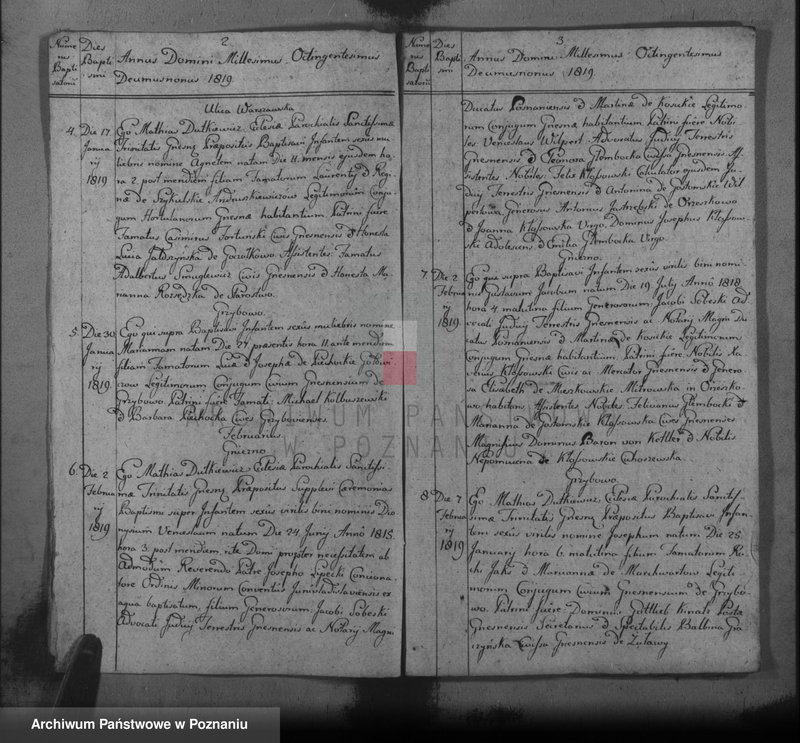 2.
Nume
rus
Bapti
satorū
Dies
Bapti
smi
Annus Domini Millesimus Octingentesimus
Decimusnonus 1819.
Ulica Warszawska
4. Die 17
Janua
rij
1819
Ego Mathias Dutkiewicz Eclesiæ Parochialis Sanctissimæ
Trinitatis Gnesnæ Præpositus Baptisavi Infantem sexûs mu
liebris nomine Agnetem natam Die 11. mensis ejusdem ho
ra 2. post meridiem filiam Famatorum Laurentij &
Andruszkiewiczow Legitimorum Conju
gum Hortulanorum Gnesnæ habitantium Patrini fuere
Famatus Casimirus Civis Gnesnensis & Honesta
Lucia de Assistentes: Famatus
Adalbertus Smuglewicz Civis Gnesnensis & Honesta Ma
rianna de Starostwo.
Grzybowo.
5. Die 30
Janua
rij
1819.
Ego qui supra Baptisavi Infantem sexûs muliebris nomine
Mariannam natam Die 27 præsentis hora 11. ante meridiem
filiam Famatorum Lucæ & Josephæ de
Legitimorum Conjugum Civium Gnesnensium de
Grzybowo. Patrini fuere Famati: Michael Kolbuszewski
& Barbara Piechocka Cives Grzybovienses.
Februarius
Gniezno.
6. Die 2
Februa
rij
1819
Ego Mathias Dutkiewicz Eclesiæ Parochialis Sanctissi
mæ Trinitatis Gnesnæ Præpositus Supplevi Cæremonia
Baptismi super Infantem sexûs virilis bini nominis Dio
nysium Venceslaum natum Die 24 Junij Anno 1815.
hora 3. post meridiem, rite Domi propter necesitatem ab
Admodum Reverendo Patre Josepho Lipecki Conciona
tore Ordinis Minorum Conventus Juniwladislaviensis ex
aqua baptisatum, filium Generosorum Jacobi Sobeski
Advocati Judicij Terrestris Gnesnensis ac Notarij Magni
3.
Nume
rus
Bapti
satorū
Dies
Bapti
smi
Annus Domini Millesimus Octingentesimus
Decimusnonus 1819.
Ducatus Posnaniensis & Martinæ de Kosickie Legitimo
rum Conjugum Gnesnæ habitantium Patrini fuere Nobi
les Venceslaus Wilpert Advocatus Judicij Terrestris
Gnesnensis & Głembocka Civissa Gnesnensis. As
sistentes Nobiles Felix Kłossowski ejusdem Ju
dicij Terrestris Gnesnensis & Antonina de Gostomskie Wil
pertowa, Generosus Antonius Jastrzębski de Orzeszkowo
& Joanna Kłossowska Virgo, Dominus Josephus Kłossow
ski Adolescens & Emilia Głembocka Virgo.
Gniezno.
7. Die 2
Februa
rij
1819.
Ego qui supra Baptisavi Infantem sexûs virilis bini nomi
nis Gustavum Jacobum natum Die 19 Julij Anno 1818
hora 4. matutina filium Generosorum: Jacobi Sobeski Ad
vocati Judicij Terrestris Gnesnensis ac Notarij Magni Du
catus Posnaniensis & Martinæ de Kosickie Legitimorum
Conjugum Gnesnæ habitantium. Patrini fuere: Nobilis Xa
verius Kłossowski Civis ac Mercator Gnesnensis & Genero
sa Elisabeth de Mieszkowskie Mitrowska in Orzeszko
wo habitans, Assistentes Nobiles: Felicianus Głembocki &
Marianna de Gostomskie Kłossowska Cives Gnesnenses.
Magnificus Dominus Baron von Kottler & Nobilis
Nepomucena de Kłossowskie
Grzybowo.
8 Die 7
Februa
rij
1819
Ego Mathias Dutkiewicz Eclesiæ Parochialis Sanctis
simæ Trinitatis Gnesnæ Præpositus Baptisavi Infan
tem sexûs virilis nomine Josephum natum Die 25
Januarij hora 6. matutina filium Famatorum Ro
chi & Mariannæ de Legiti
morum Conjugum Civium Gnesnensium de Grzybo
wo. Patrini fuere Dominus Gottlieb Postæ
Gnesnensis Secretarius & Spectabilis Balbina Gra
czyńska Civissa Gnesnensis de
ARCHIWUM PAŃSTWOWE
W POZNANIU
Archiwum Państwowe w Poznaniu